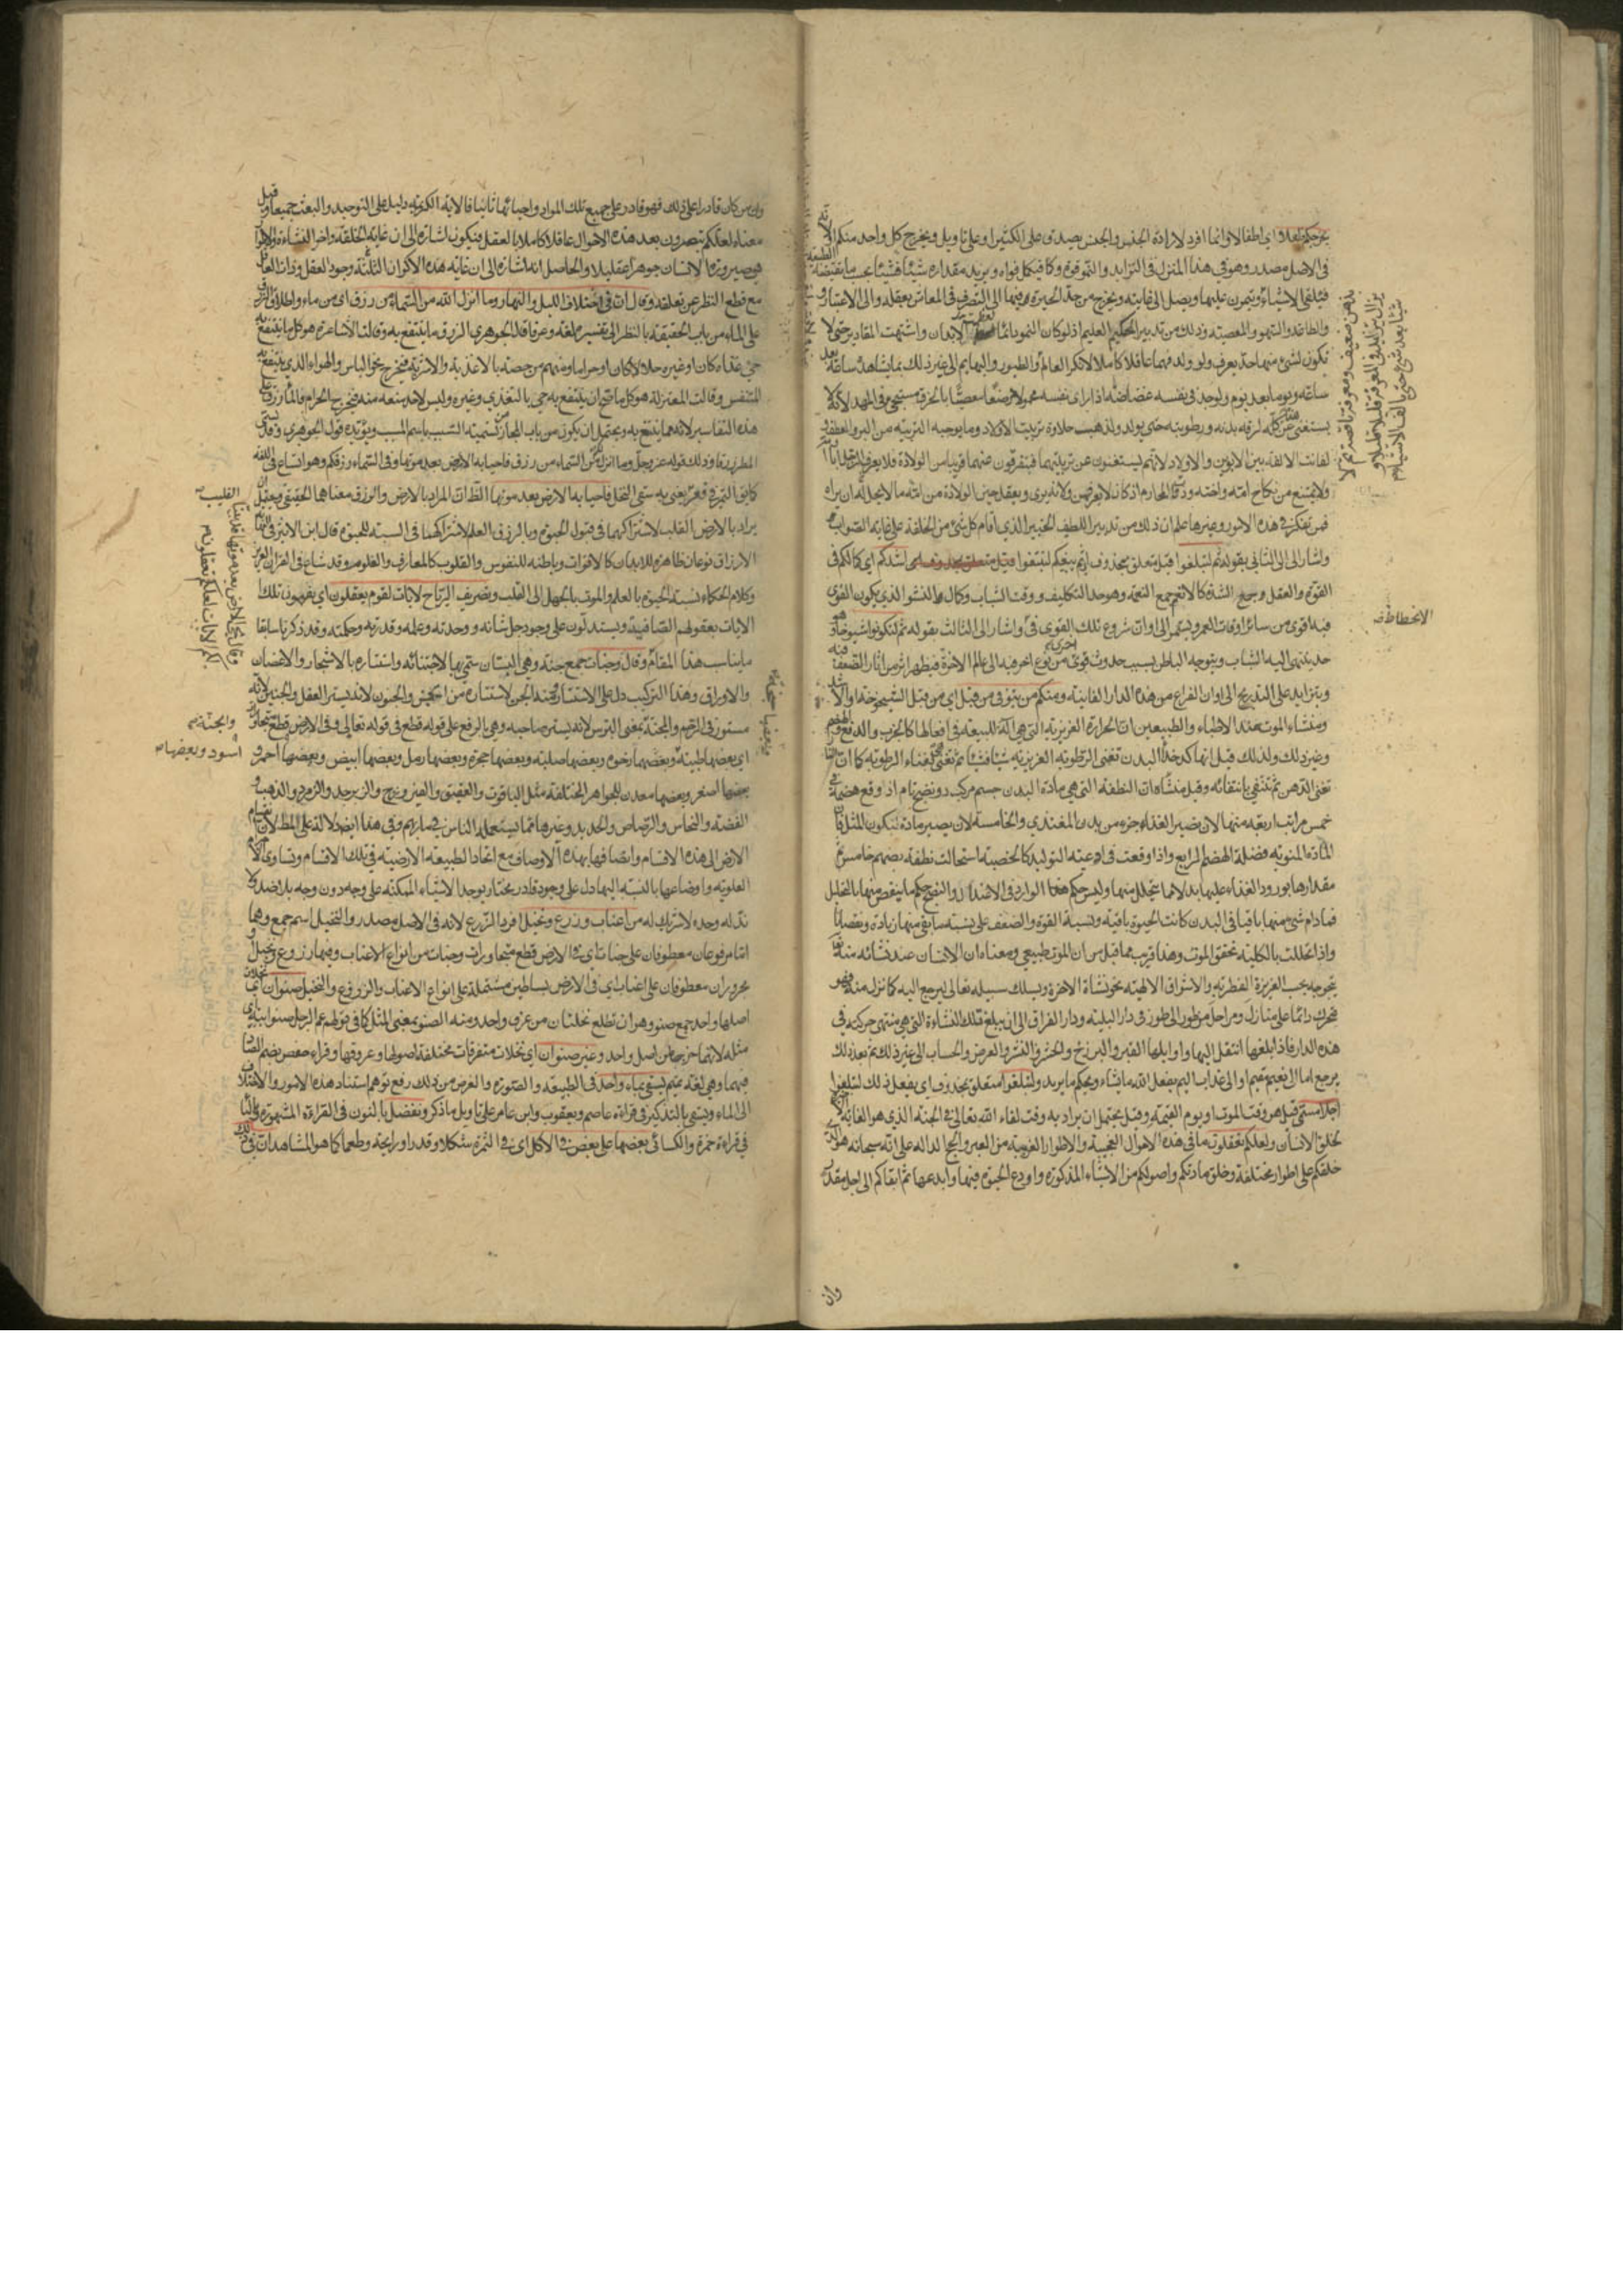 يخرجكم طفلا اي اطفالا وانما افرد لارادة الجنس والجنس يصدق على الكثير او على تاويل ويخرج كل واحد منكم
في الاصل مصدر وهو في هذا المنزل في التزايد والنمو قوة وكا فيكمل قواه ويزيد مقداره شيئا فشيئا
فيلقى الاشياء ويتمرن عليها ويصل الى غايته ويخرج من حد الحيرة فيها الى التصرف في المعاش بعقله والى الاعتبار
والطاعة والسهو والمعصية وذلك من تدبير الحكيم العليم اذ لو كان النمو دائما الابدان واشتبهت المقادير حتى لا
يكون لشئ منها حد يعرف ولو ولد فهما عاقلا كاملا لانكر العالم والطيور والبهايم الى غير ذلك مما يشاهد ساعة بعد
ساعة ويوما بعد يوم ولوجد في نفسه غضاضة اذا راى نفسه محمولا مرضعا معصبا بالخرق مسجى في المهد لانه لا
يستغنى عن هذا كله لرقة بدنه ورطوبته حين يولد ولذهبت حلاوة تربيت الاولاد وما يوجبه التربية من البر والعطف
لفاتت الالفة بين الابوين والاولاد لانهم يستغنون عن تربيتهما فيتفرقون عنهما قريبا من الولادة فلا يعرف
ولا يمتنع من نكاح امه واخته وذوات المحارم اذ كان لا يعرفهن ولا يدري ويعقل حين الولادة من الله ما لا يحل له ان يراه
فمن تفكر في هذه الامور وغيرها علم ان ذلك من تدبير اللطيف الخبير الذي اقام كل شئ من الخلقة على غاية الصواب
واشار الى الثاني بقوله ثم لتبلغوا قيل متعلق بمحذوف اي ثم يبقيكم لتبلغوا اشدكم اي كمالكم في
القوة والعقل وجمع الشدة كالانعم جمع النعمة وهو حد التكليف ووقت الشباب وكمال النشو الذي يكون القوى
فيه اقوى من سائر اوقات العمر ويستمر الى اوان شروع تلك القوى في واشار الى الثالث بقوله ثم لتكونوا شيوخا
حد ينتهى اليه الشباب ويتوجه الباطن بسبب حدوث قوى من نوع اخر فيه الى عالم الاخرة فيظهر اثر من اثار الضعف
ويتزايد على التدريج الى اوان الفراغ من هذه الدار الفانية ومنكم من يتوفى من قبل اي من قبل الشيخوخة او الاشد
ومنشاء الموت عند الاطباء والطبيعيين ان الحرارة الغريزية التي هي الة للطبيعة في افعالها كالجذب والدفع والهضم
وغير ذلك ولذلك قيل انها كدخداء البدن تفنى الرطوبة الغريزية شيئا فشيئا ثم تفنى لفناء الرطوبة كما ان
تفنى الدهن ثم تنتفى بانتفائه وقيل منشاه ان النطفة التي هي مادة البدن جسم مركب ذو نضج تام اذ وقع هضمه
خمس مراتب اربعة منها لان يصير الغذاء جزء من بدن المغتذي والخامسة لان يصير مادة لتكون المثل فان
المادة المنوية فضلة الهضم الرابع واذا وقعت في اوعية التوليد كالخصية استحالت نطفة بهضم خامس
مقدارها بورود الغذاء عليها بدلا عما يتحلل منها وليس حكم هذا الوارد في الاعتدال والنضج حكم ما ينقص منها بالتحليل
فما دام شئ منها باقيا في البدن كانت الحيوة باقية ونسبة القوة والضعف على نسبة ما بقى منها زيادة ونقصانا
واذا تحللت بالكلية تحقق الموت وهذا قريب مما قيل من ان الموت طبيعي ومعناه ان الانسان عند نشائه منشاه
يتوجه بحسب الغريزة الفطرية والاشراق الالهية نحو نشاة الاخرة ويسلك سبيله تعالى ليرجع اليه كما نزل منه فهو
يتحرك دائما على منازل ومراحل من طور الى طور في دار البلية ودار الفراق الى ان يبلغ تلك النشاءة التي هي منتهى حركته في
هذه الدار فاذا بلغها انتقل اليها واوايلها القبر والبرزخ والحشر والنشر والعرض والحساب الى غير ذلك ثم بعد ذلك
يرجع اما الى نعيم مقيم او الى عذاب اليم يفعل الله ما يشاء ويحكم ما يريد ولتبلغوا متعلق بمحذوف اي يفعل ذلك لتبلغوا
اجلا مسمى قيل هو وقت الموت او يوم القيمة وقيل يحتمل ان يراد به وقت لقاء الله تعالى في الجنة الذي هو الغاية
لخلق الانسان ولعلكم تعقلون ما في هذه الاحوال العجيبة والاطوار الغريبة من العبر والحجج الدالة على انه سبحانه هو الذي
خلقكم على اطوار مختلفة وخلق مادتكم واصولكم من الاشياء المذكورة واودع الحيوة فيها وابدعها ثم ابقاكم الى اجل مقدر
الانحطاط
وان
وان من كان قادرا على ذلك فهو قادر على جميع تلك المواد واحيائها ثانيا فالاية الكريمة دليل على التوحيد والبعث جميعا وقيل
معناه لعلكم تصيرون بعد هذه الاحوال عاقلا كاملا بالعقل فيكون اشارة الى ان غاية الخلقة واخر النشاءة
هو صيرورة الانسان جوهرا عقليا والحاصل انه اشارة الى ان غاية هذه الاكوان الثلثة وجود العقل وذات العاقل
مع قطع النظر عن تعلقه وقال ان في اختلاف الليل والنهار وما انزل الله من السماء من رزق اي من ماء واطلاق الرزق
على الماء من باب الحقيقة بالنظر الى تفسيره لغة وعرفا قال الجوهري الرزق ما ينتفع به وقالت الاشاعرة هو كل ما ينتفع به
حي غذاء كان او غيره حلالا كان او حراما ومنهم من خصه بالاغذية والاشربة فيخرج نحو اللباس والهواء الذي ينتفع به
المتنفس وقالت المعتزلة هو كل ما صح ان ينتفع به حي بالتغذي وغيره وليس لاحد منعه منه فيخرج الحرام والماء رزق على
هذه التفاسير لانه مما ينتفع به ويحتمل ان يكون من باب المجاز تسمية السبب باسم المسبب ويؤيده قول الجوهري وقد يسمى
المطر رزقا وذلك قوله عز وجل وما انزل الله من السماء من رزق فاحيا به الارض بعد موتها وفي السماء رزقكم وهو اتساع في اللغة
كما يق التمر في قعر البئر يعني به سقى النخل فاحيا به الارض بعد موتها الظاهر ان المراد بالارض والرزق معناهما الحقيقي ويحتمل ان
يراد بالارض القلب لاشتراكهما في قبول الحيوة وبالرزق العلم لاشتراكهما في السببية للحيوة قال ابن الاثير في النهاية
الارزاق نوعان ظاهرة للابدان كالاقوات وباطنة للنفوس والقلوب كالمعارف والعلوم وقد شاع في القران العزيز
وكلام الحكماء نسبة الحيوة بالعلم والموت بالجهل الى القلب وتصريف الرياح لايات لقوم يعقلون اي يفهمون تلك
الايات بعقولهم الصافية ويستدلون على وجوده جل شانه ووحدته وعلمه وقدرته وحكمته وقد ذكرنا سابقا
ما يناسب هذا المقام وقال وجنات جمع جنة وهي البستان سمى بها لاجتنانه واستتاره بالاشجار والاغصان
والاوراق وهذا التركيب دل على الاستتار ومنه الجن لاستتاره من الحس والجنون لانه يستر العقل والجنين لانه
مستور في الرحم والمجنة بمعنى الترس لانه يستر صاحبه وهي بالرفع على قوله قطع في قوله تعالى وفي الارض قطع متجاورات
اي بعضها طيبة وبعضها رخوة وبعضها صلبة وبعضها حجرة وبعضها رمل وبعضها ابيض وبعضها احمر و
بعضها اصفر وبعضها معدن للجواهر المختلفة مثل الياقوت والعقيق والفيروزج والزبرجد والزمرد والذهب و
الفضة والنحاس والرصاص والحديد وغيرها مما يستعمله الناس في مصارفهم وفي هذا ايضا دلالة على المط لان انقسام
الارض الى هذه الاقسام واتصافها بهذه الاوصاف مع اتحاد الطبيعة الارضية في تلك الاقسام وتساوي
العلوية واوضاعها بالنسبة اليها دل على وجود قادر مختار يوجد الاشياء الممكنة على وجه دون وجه بلا ضد ولا
ند له وحده لا شريك له من اعناب وزرع ونخيل افرد الزرع لانه في الاصل مصدر والنخيل اسم جمع وهما
اما مرفوعان معطوفان على جنات اي في الارض قطع متجاورات وجنات من انواع الاعناب وفيها زرع ونخيل او
مجروران معطوفان على اعناب اي في الارض بساطين مشتملة على انواع الاعناب والزروع والنخيل صنوان
اصلها واحد جمع صنو وهو ان تطلع نخلتان من عرق واحد ومنه الصنو بمعنى المثل كما في قولهم عم الرجل صنو ابيه اي
مثله لانهما خرجا من اصل واحد وغير صنوان اي نخلات متفرقات مختلفة اصولها وعروقها وقراء حفص بضم الصاد
فيهما وهي لغة تميم يسقى بماء واحد في الطبيعة والصورة والغرض من ذلك رفع توهم استناد هذه الامور والاختلاف
الى الماء ويسقى بالتذكير في قراءة عاصم ويعقوب وابن عامر على تاويل ما ذكر ونفضل بالنون في القراءة المشهورة وبالياء
في قراءة حمزة والكسائي بعضها على بعض في الاكل اي في الثمرة شكلا وقدرا ورايحة وطعما كما هو المشاهد ان في ذلك
والجنة
اسود وبعضها